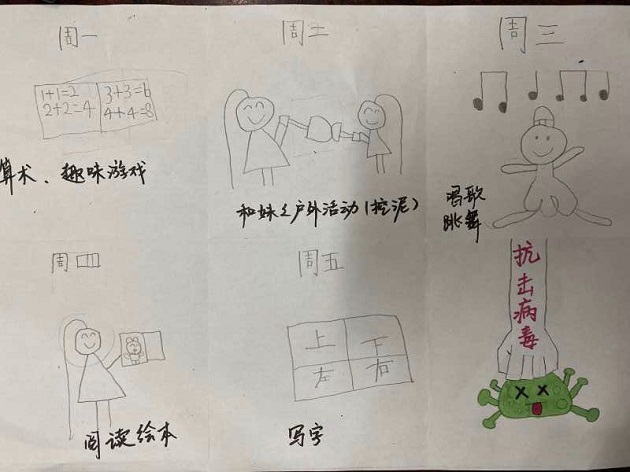 周一
1+1=2
2+2=4
3+3=6
4+4=8
算术、趣味游戏
周二
和妹之户外活动(挖泥)
周三
唱歌
跳舞
周四
阅读绘本
周五
上 下
左 右
写字
抗击病毒